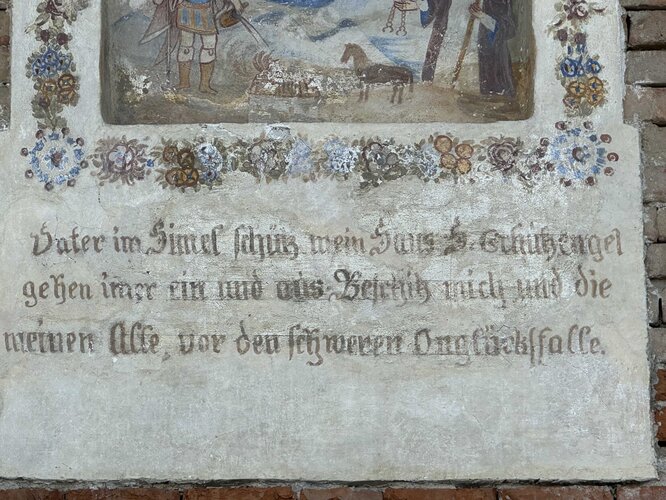 Vater im Himel schütz mein Haus S. Schützengel
gehen imer ein und aus. Beschütz mich und die
meinen Alle, vor den schweren Onglücksfalle.